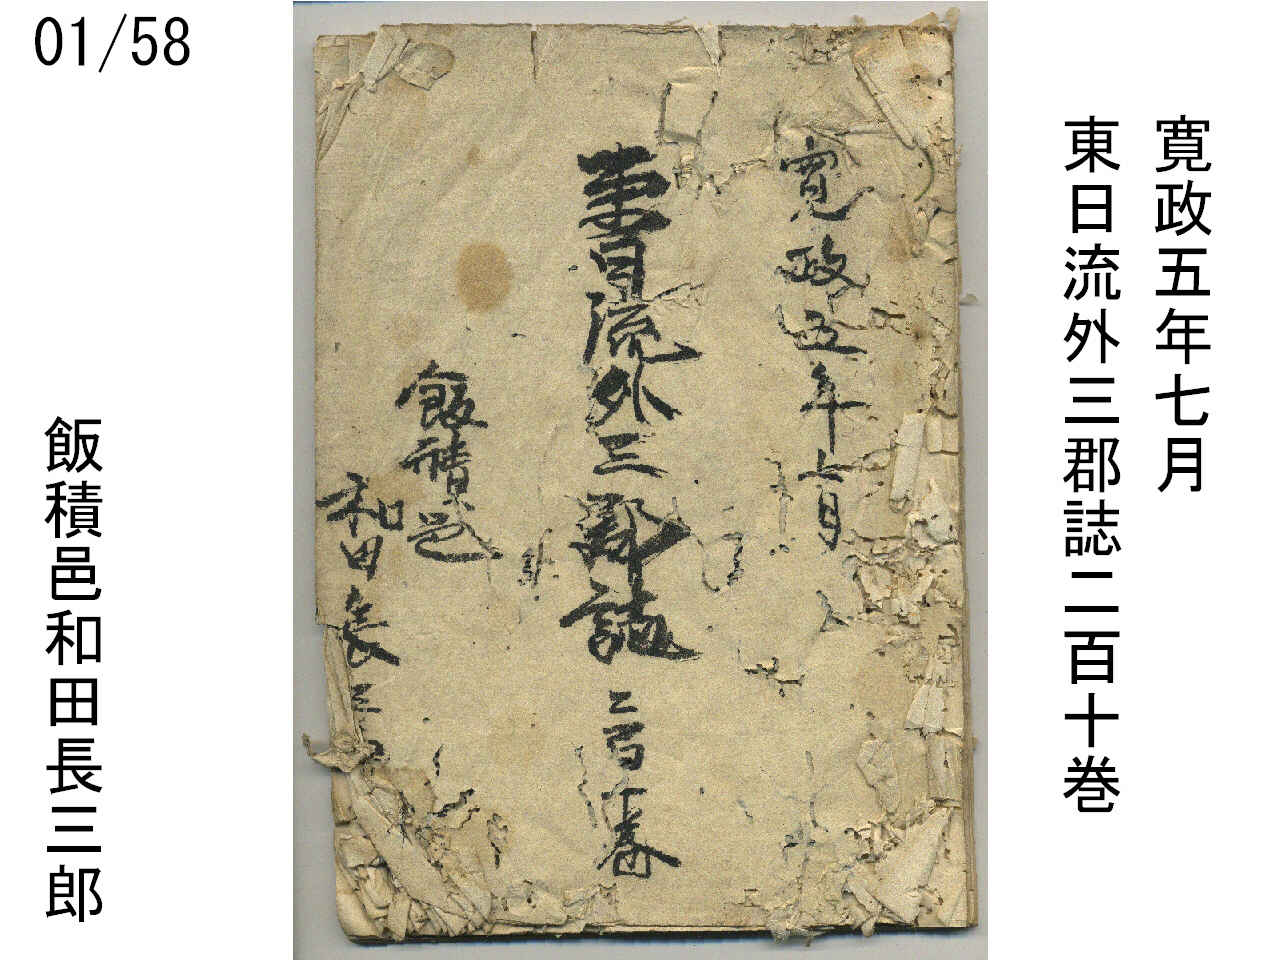 01/58
寛政五年七月
東日流外三郡誌二百十巻
飯積邑和田長三郎
寛政五年七月
東日流外三郡誌 二百十巻
飯積邑
和田長三郎